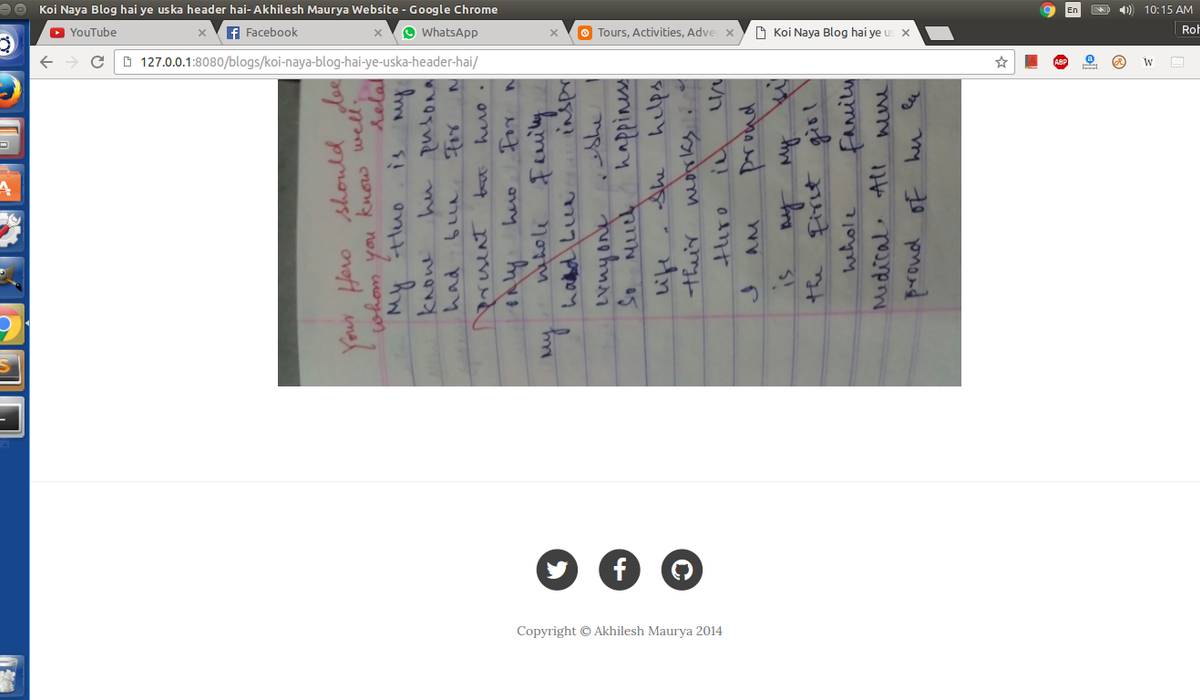 Koi Naya Blog hai ye uska header hai- Akhilesh Maurya Website - Google Chrome
En
10:15 AM
YouTube
Facebook
WhatsApp
Tours, Activities, Adve
Koi Naya Blog hai ye us
Roh
127.0.0.1:8080/blogs/koi-naya-blog-hai-ye-uska-header-hai/
ABP
W
Your Hero should be
whom you know well.
My Hero is my
know her persona
had been For
present hero.
only hero For
My whole Family
been inspr
everyone. She
So much happiness
Life. She helps
their works.
Hero is
I am proud
is my
the First girl
whole Family
Medical. All were
proud of her
Copyright © Akhilesh Maurya 2014